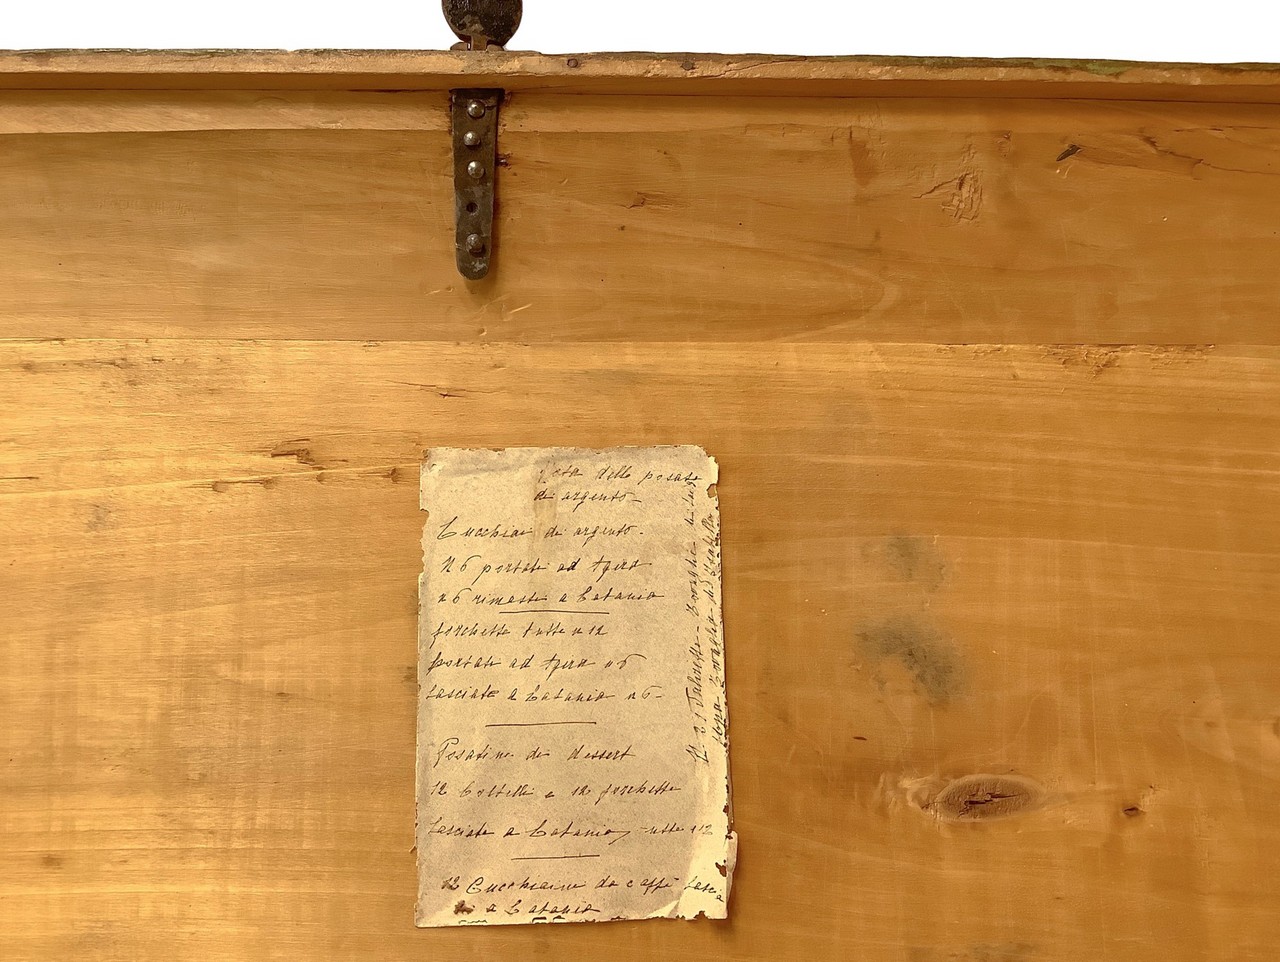 Nota delle posate
di argento-
Cucchiai di argento.
N 6 portati ad
n 6 rimasti a Catania
forchette tutte n 12
portate ad n 6
lasciate a Catania n 6-
Posatine di dessert
12 Coltelli e 12 forchette
lasciate a Catania, tutte n 12
12 Cucchiaini da caffè lascia
ti a Catania
N. 21 Salviette - Tovaglie di
sopra Tovaglia di